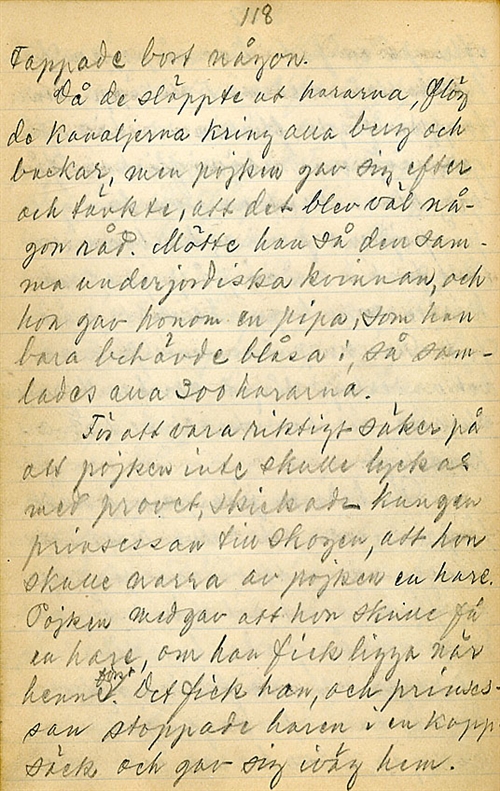 118
tappade bort någon.
Då de släppte ut hararna, flög
de kavaljerna kring alla berg och
backar, men pojken gav sig efter
och tänkte, att det blev väl nå-
gon råd. Mötte han så den sam-
ma underjordiska kvinnan, och
hon gav honom en pipa, som han
bara behövde blåsa i, så sam-
lades alla 300 hararna.
För att vara riktigt säker på
att pojken inte skulle lyckas
med provet, skickade kungen
prinsessan till skogen, att hon
skulle narra av pojken en hare.
Pojken medgav att hon skulle få
en hare, om han fick ligga när
henne först. Det fick han, och prinses-
san stoppade haren i en kapp-
säck och gav sig iväg hem.